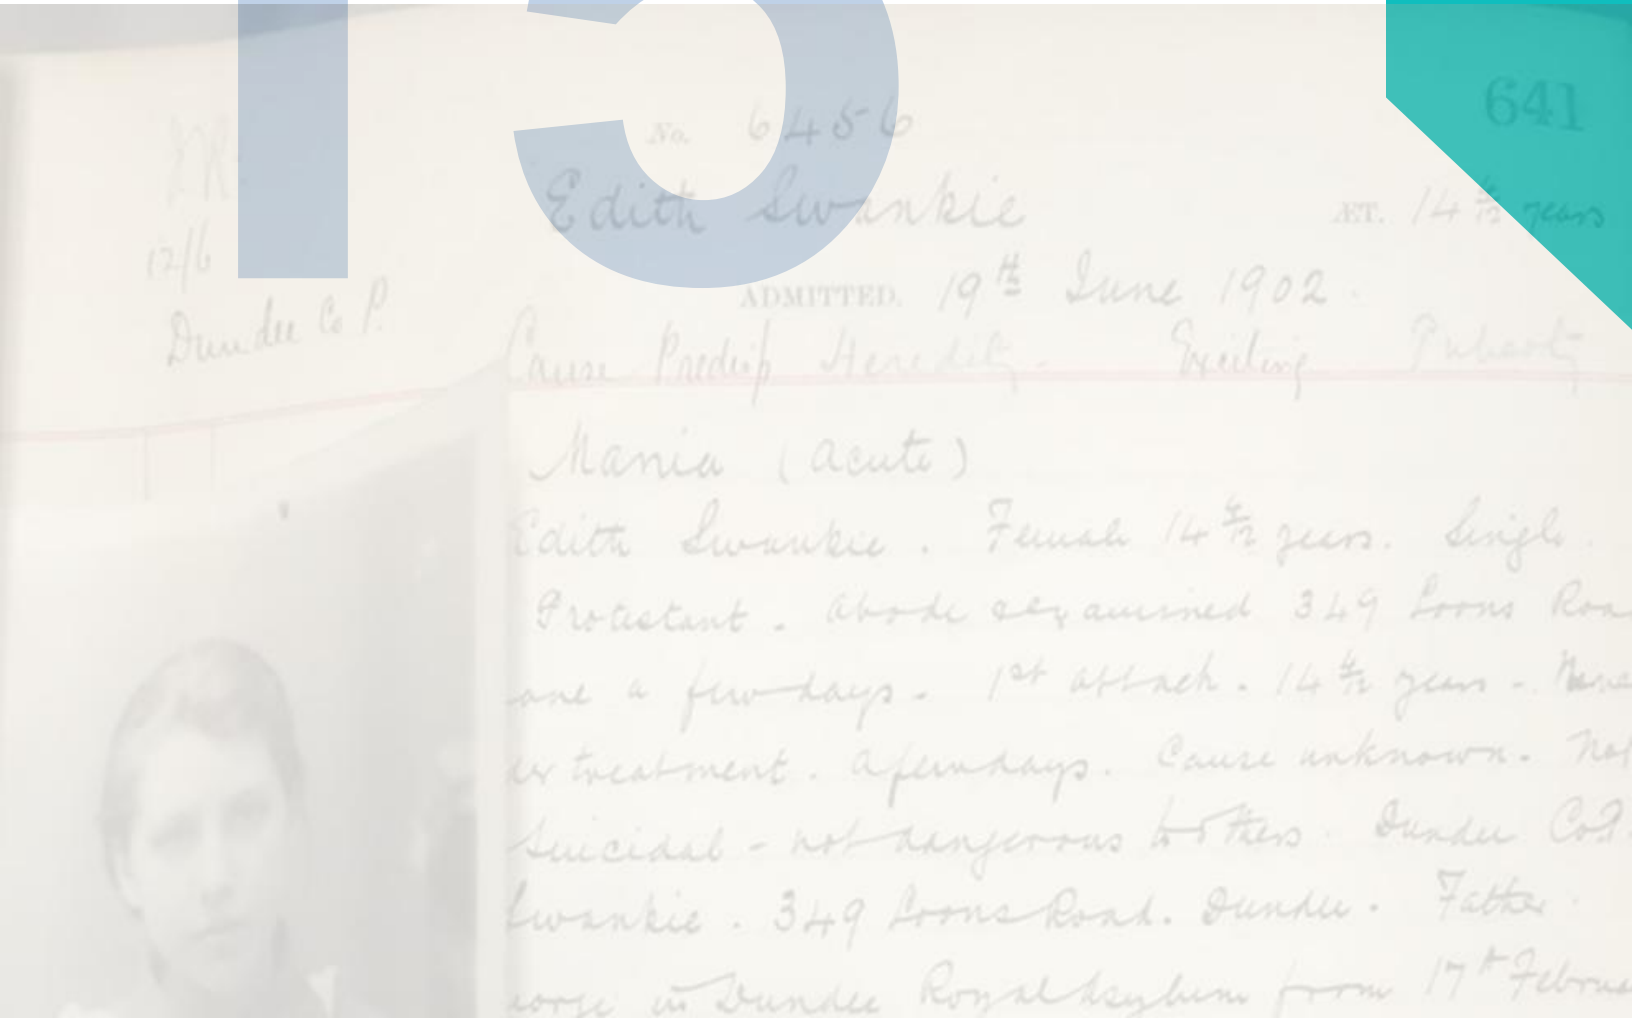 15
641
No. 6456
Edith Swankie ÆT. 14 4/12 years
12/6
ADMITTED. 19th June 1902
Dundee Co P.
Cause Predisp Heredity - Exciting Puberty
Mania (acute)
Edith Swankie. Female 14 4/12 years. Single.
Protestant. abode examined 349 Loons Roa
one a few days. 1st attack. 14 4/12 years -.
er treatment. a few days. Cause unknown. Not
Suicidal - not dangerous to others. Dundee Co P.
Swankie. 349 Loons Road. Dundee. Father.
in Dundee Royal Asylum from 17th Februa